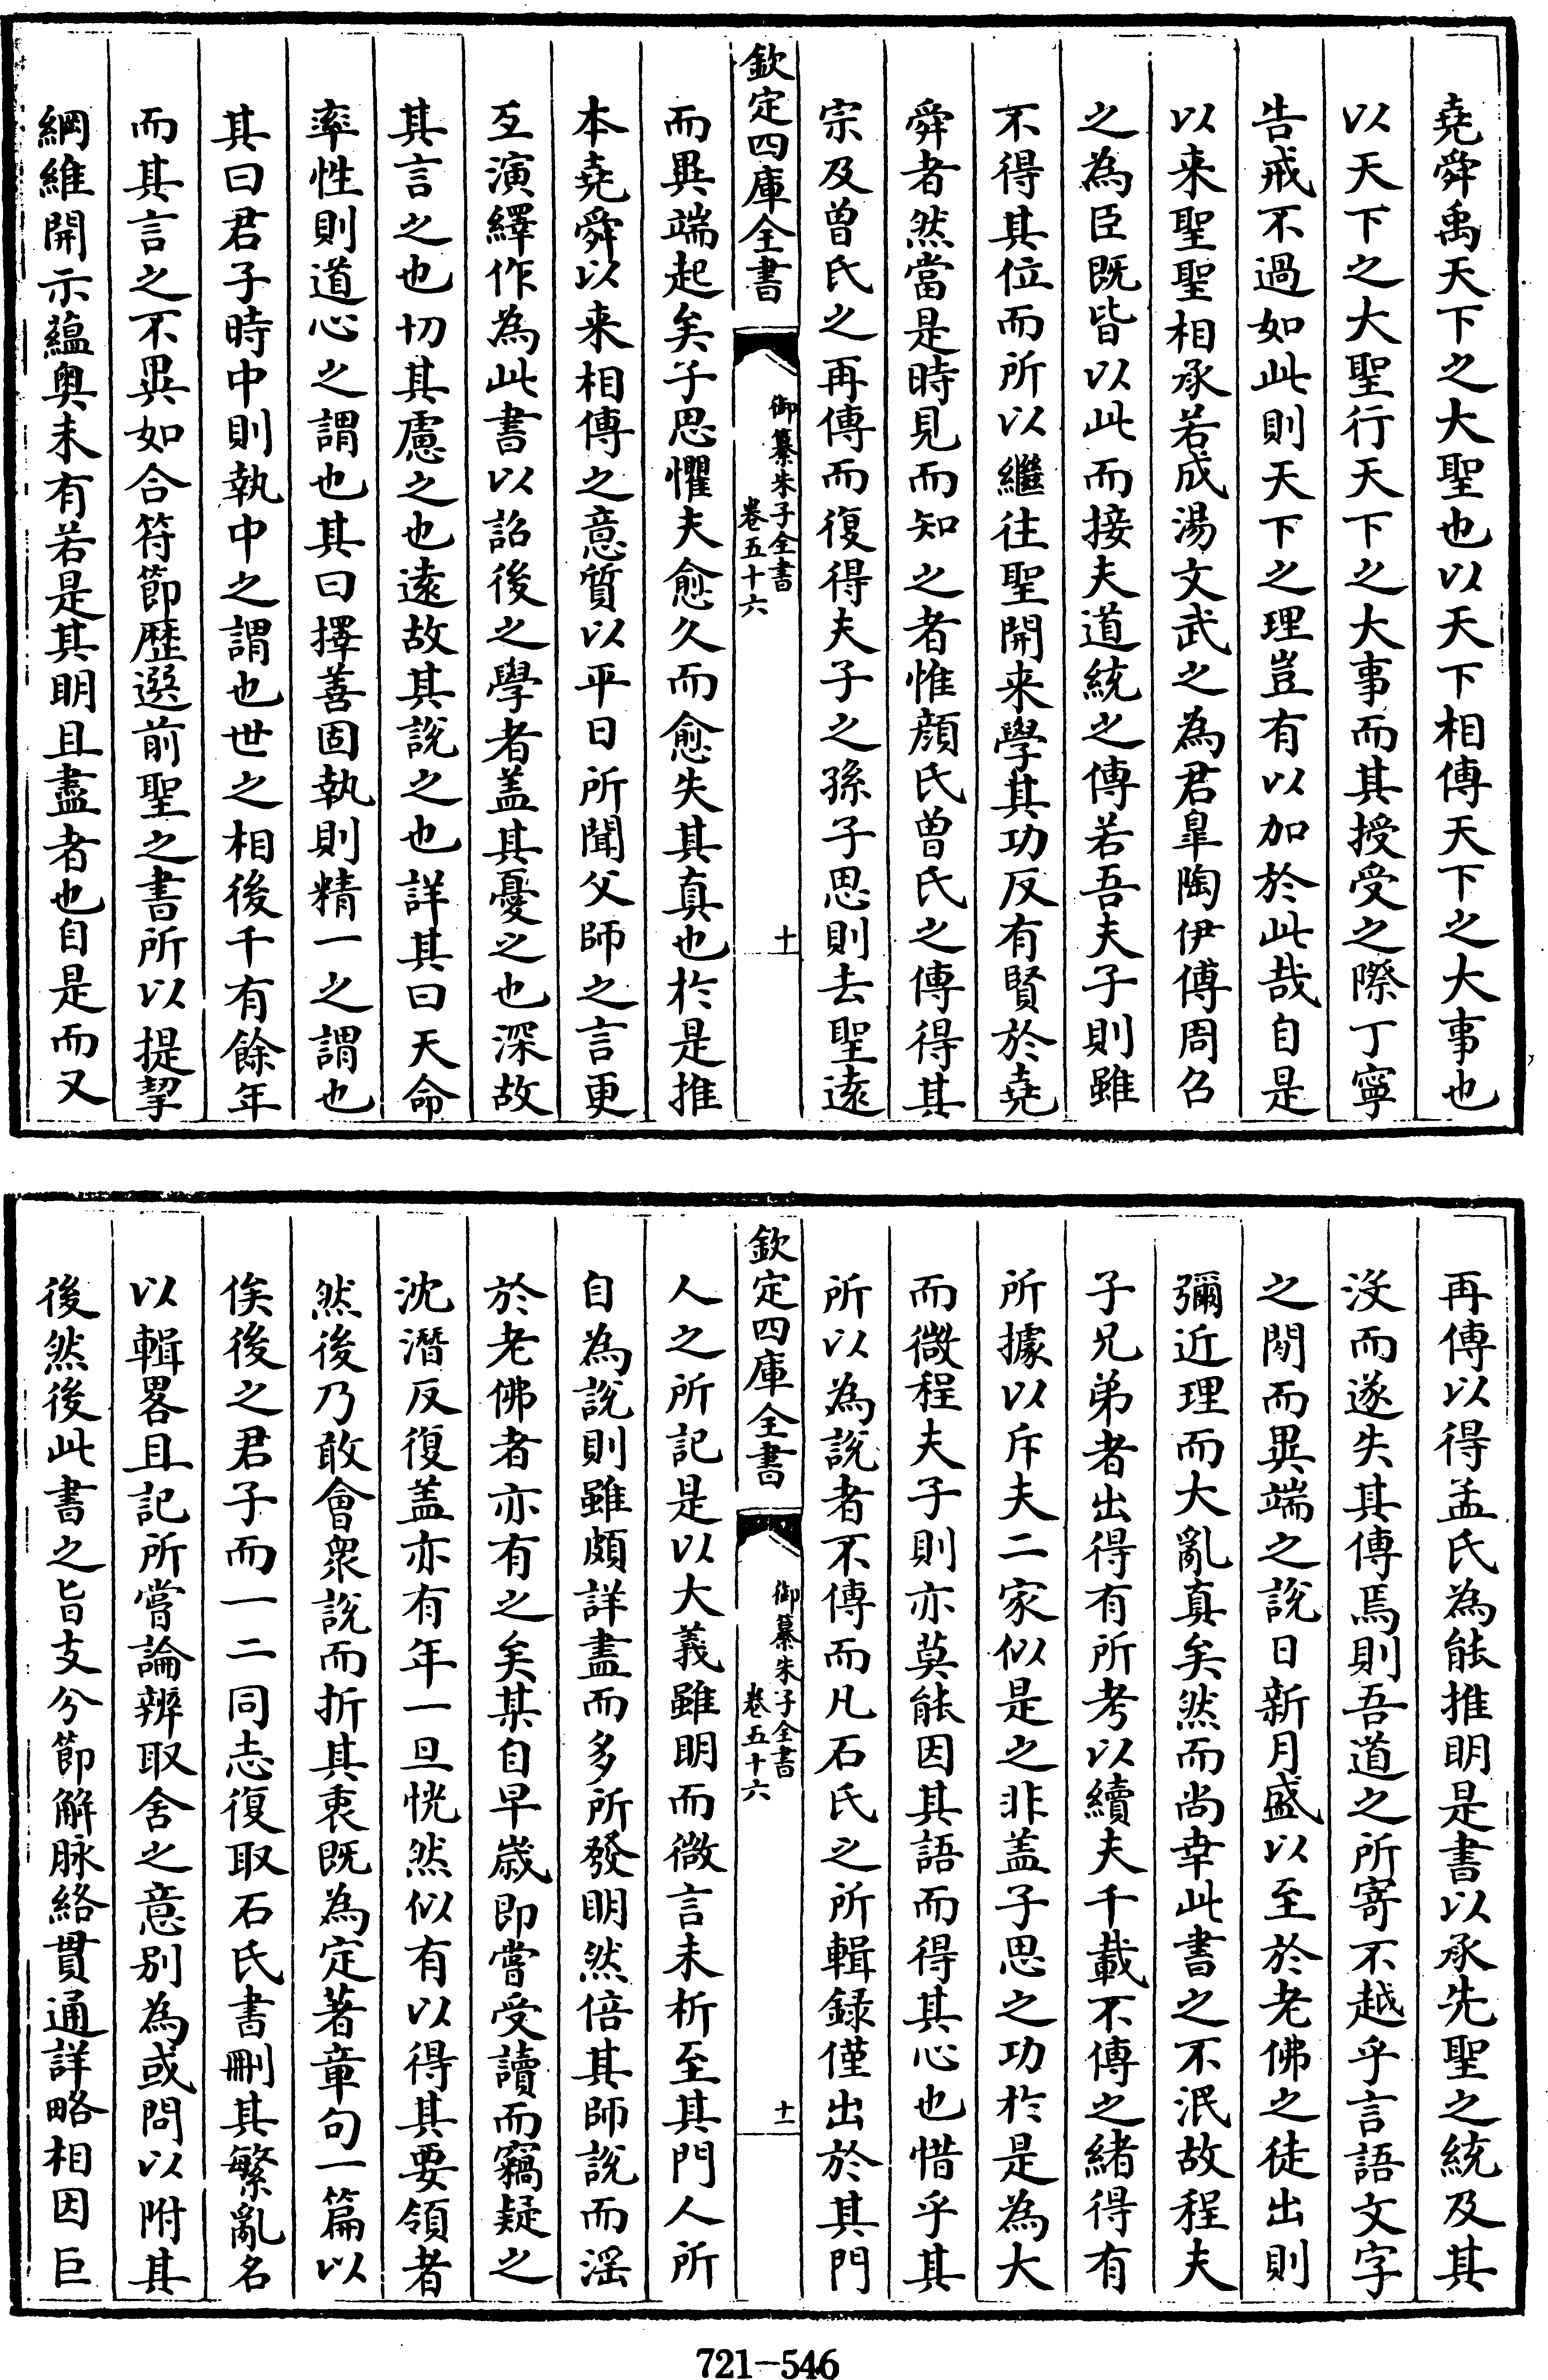 堯舜禹天下之大聖也以天下相傳天下之大事也
以天下之大聖行天下之大事而其授受之際丁寧
告戒不過如此則天下之理豈有以加於此哉自是
以来聖聖相承若成湯文武之為君臯陶伊傅周召
之為臣既皆以此而接夫道統之傳若吾夫子則雖
不得其位而所以繼往聖開来學其功反有賢於堯
舜者然當是時見而知之者惟顔氏曽氏之傳得其
宗及曽氏之再傳而復得夫子之孫子思則去聖遠
欽定四庫全書
御纂朱子全書
卷五十六
十
而異端起矣子思懼夫愈久而愈失其真也於是推
本堯舜以来相傳之意質以平日所聞父師之言更
互演繹作為此書以詔後之學者盖其憂之也深故
其言之也切其慮之也遠故其説之也詳其曰天命
率性則道心之謂也其曰擇善固執則精一之謂也
其曰君子時中則執中之謂也世之相後千有餘年
而其言之不異如合符節歷選前聖之書所以提挈
綱維開示蘊奥未有若是其明且盡者也自是而又
再傳以得孟氏為能推明是書以承先聖之統及其
沒而遂失其傳焉則吾道之所寄不越乎言語文字
之閒而異端之説日新月盛以至於老佛之徒出則
彌近理而大亂真矣然而尚幸此書之不泯故程夫
子兄弟者出得有所考以續夫千載不傳之緒得有
所據以斥夫二家似是之非盖子思之功於是為大
而微程夫子則亦莫能因其語而得其心也惜乎其
所以為説者不傳而凡石氏之所輯録僅出於其門
欽定四庫全書
御纂朱子全書
卷五十六
十一
人之所記是以大義雖明而微言未析至其門人所
自為説則雖頗詳盡而多所發明然倍其師説而淫
於老佛者亦有之矣某自早歲即嘗受讀而竊疑之
沈潛反復盖亦有年一旦恍然似有以得其要領者
然後乃敢會衆説而折其衷既為定著章句一篇以
俟後之君子而一二同志復取石氏書刪其繁亂名
以輯畧且記所嘗論辨取舍之意别為或問以附其
後然後此書之旨支分節解脉絡貫通詳略相因巨
721-546